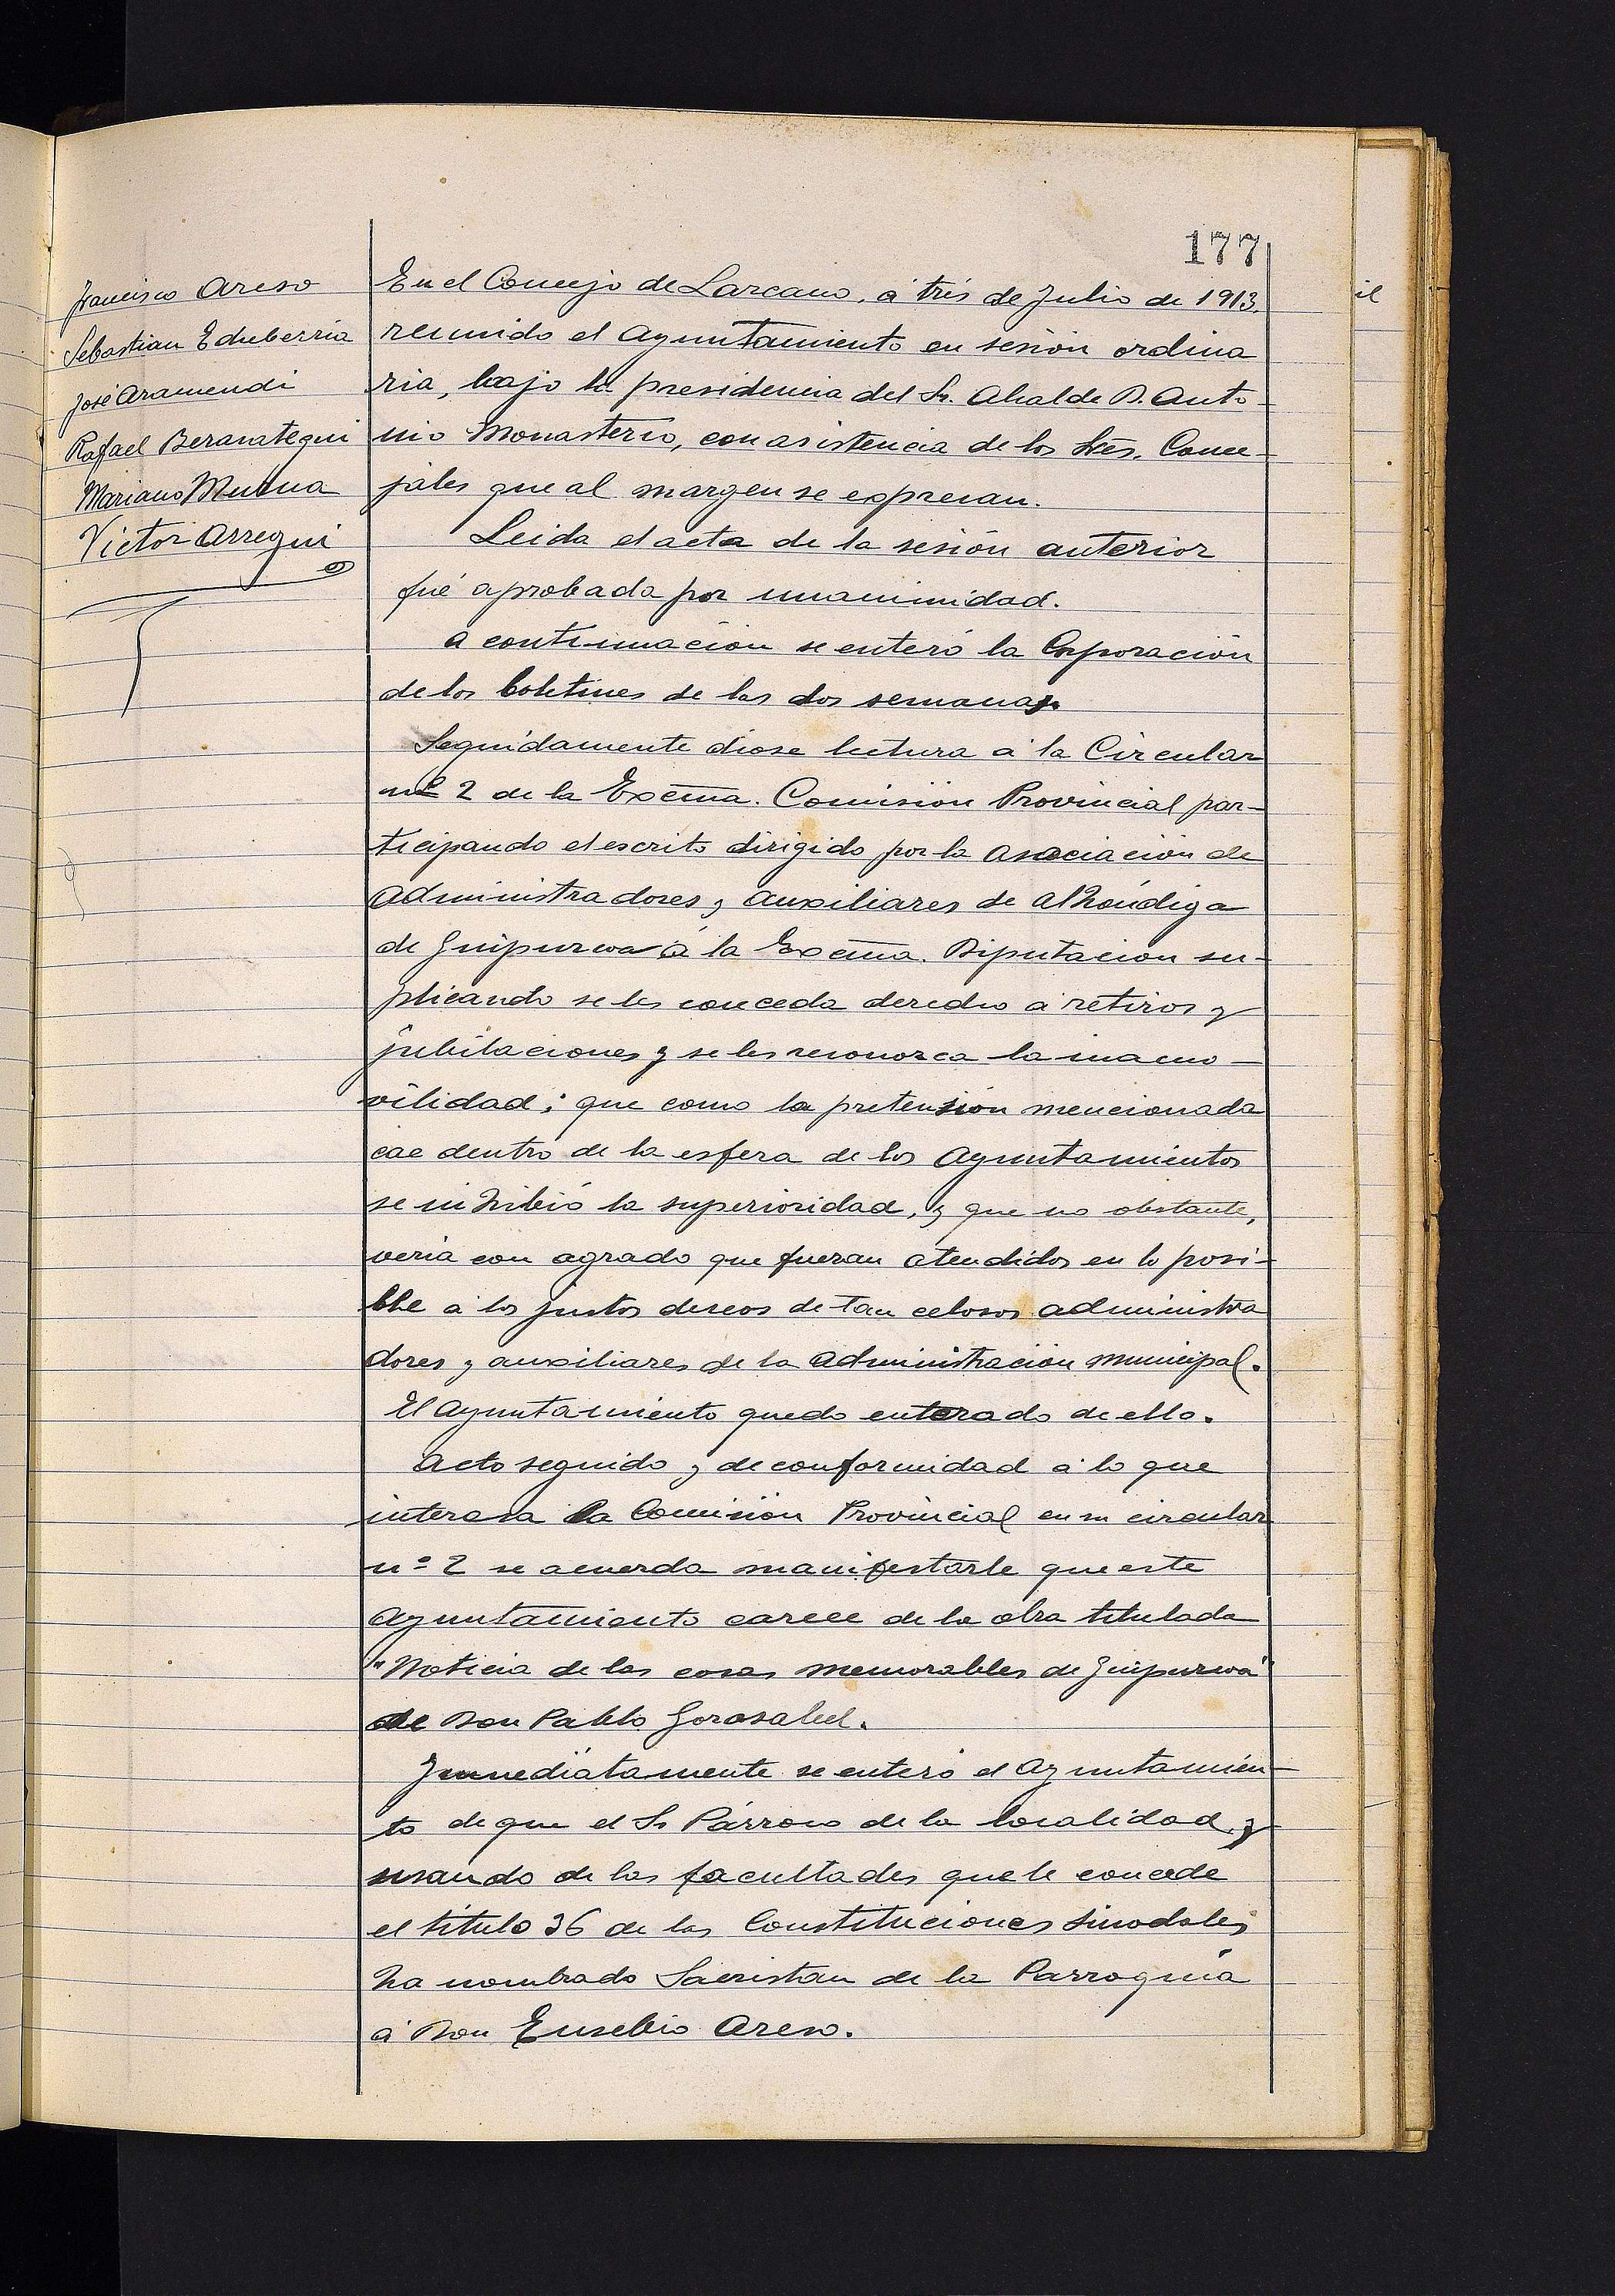 177
Francisco Areso
Sebastian Echeberria
José Aramendi
Rafael Beranategui
Mariano Mutua
Victor Arregui
En el Concejo de Lazcano, á trés de Julio de 1913.
reunido el Ayuntamiento en sesión ordina
ria, bajo la presidencia del Sr. Alcalde D. Anto-
nio Monasterio, con asistencia de los Srés. Conce-
jales que al margen se expresan.
Leida el acta de la sesión anterior
fué aprobada por unanimidad.
A continuación se enteró la Corporación
de los boletines de las dos semanas.
Seguidamente diose lectura á la Circular
nº 2 de la Excma. Comisión Provincial par-
ticipando el escrito dirigido por la Asociación de
Administradores y auxiliares de Alhóndiga
de Guipuzcoa á la Excma. Diputación su-
plicando se les conceda derecho á retiros y
jubilaciones y se les reconozca la inamo-
vilidad; que como la pretensión mencionada
cae dentro de la esfera de los Ayuntamientos
se inhibió la superioridad, y que no obstante,
veria con agrado que fueran atendidos en lo posi-
ble á los justos deseos de tan celosos administra
dores y auxiliares de la Administración municipal.
El Ayuntamiento quedo enterado de ello.
Acto seguido y de conformidad á lo que
interesa la Comisión Provincial en su circular
nº 2 se acuerda manifestarle que este
Ayuntamiento carece de la obra titulada
"Noticia de las cosas memorables de Guipuzcoa"
de Don Pablo Gorosabel.
Inmediatamente se enteró el Ayuntamien-
to de que el Sr Párroco de la localidad y
usando de las facultades que le concede
el título 36 de las Constituciones Sinodales
ha nombrado Sacristan de la Parroquia
á Don Eusebio Areso.
il